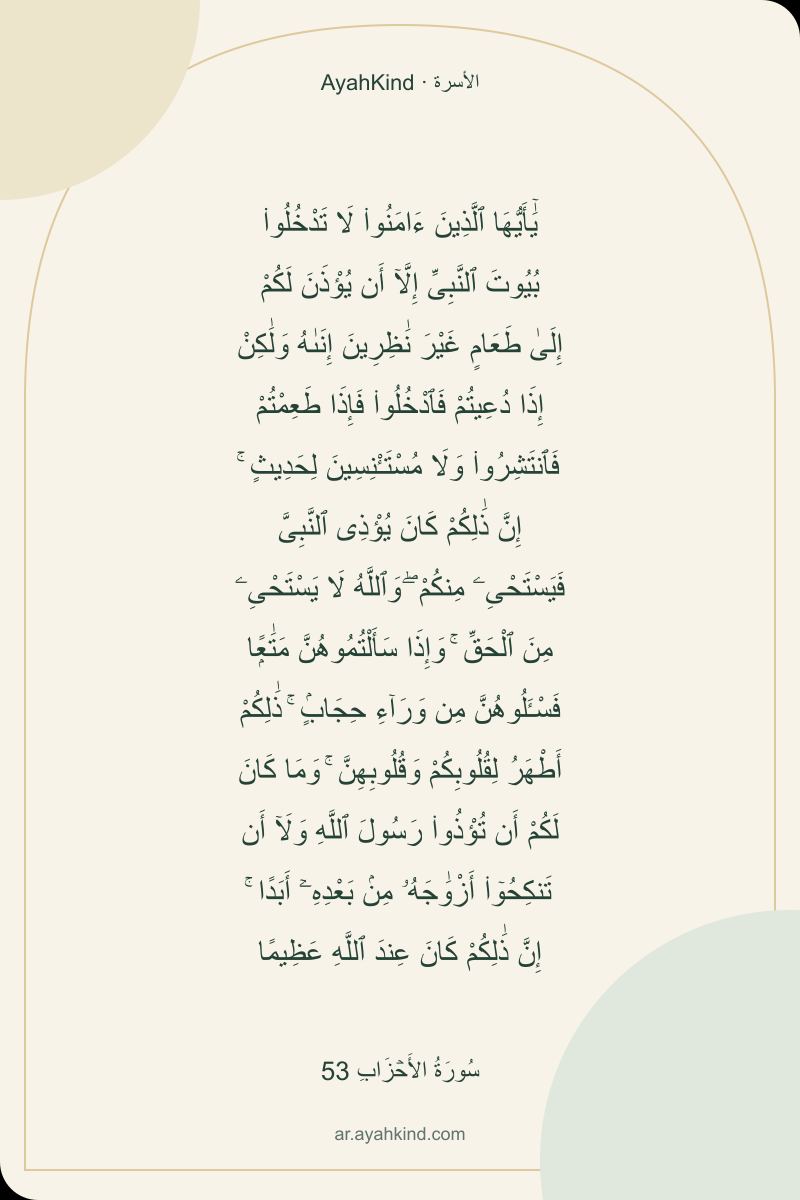 AyahKind · الأسرة
يَٰٓأَيُّهَا ٱلَّذِينَ ءَامَنُوا۟ لَا تَدْخُلُوا۟
بُيُوتَ ٱلنَّبِىِّ إِلَّآ أَن يُؤْذَنَ لَكُمْ
إِلَىٰ طَعَامٍ غَيْرَ نَٰظِرِينَ إِنَىٰهُ وَلَٰكِنْ
إِذَا دُعِيتُمْ فَٱدْخُلُوا۟ فَإِذَا طَعِمْتُمْ
فَٱنتَشِرُوا۟ وَلَا مُسْتَـْٔنِسِينَ لِحَدِيثٍ ۚ
إِنَّ ذَٰلِكُمْ كَانَ يُؤْذِى ٱلنَّبِىَّ
فَيَسْتَحْىِۦ مِنكُمْ ۖ وَٱللَّهُ لَا يَسْتَحْىِۦ
مِنَ ٱلْحَقِّ ۚ وَإِذَا سَأَلْتُمُوهُنَّ مَتَٰعًۭا
فَسْـَٔلُوهُنَّ مِن وَرَآءِ حِجَابٍۢ ۚ ذَٰلِكُمْ
أَطْهَرُ لِقُلُوبِكُمْ وَقُلُوبِهِنَّ ۚ وَمَا كَانَ
لَكُمْ أَن تُؤْذُوا۟ رَسُولَ ٱللَّهِ وَلَآ أَن
تَنكِحُوٓا۟ أَزْوَٰجَهُۥ مِنۢ بَعْدِهِۦٓ أَبَدًا ۚ
إِنَّ ذَٰلِكُمْ كَانَ عِندَ ٱللَّهِ عَظِيمًا
سُورَةُ الأَحۡزَابِ 53
ar.ayahkind.com